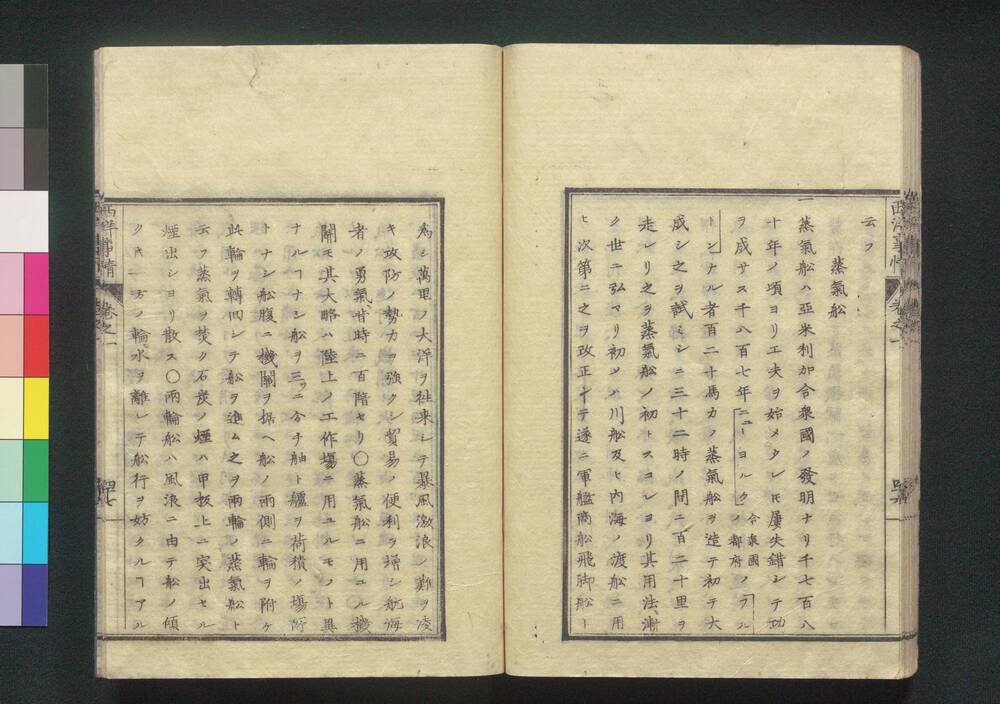 云フ
蒸氣船
一 蒸氣船ハ亞米利加合衆國ノ發明ナリ千七百八
十年ノ頃ヨリ工夫ヲ始メタレ𪜈屢失錯シテ功
ヲ成サス千八百七年ニューヨルク合衆國ノ都府ノフル
トンナル者百二十馬力ノ蒸氣船ヲ造テ初テ大
成シ之ヲ試ミシニ三十二時ノ間ニ百二十里ヲ
走レリ之ヲ蒸氣船ノ初トスコレヨリ其用法漸
ク世ニ弘マリ初メハ川船及ヒ内海ノ渡船ニ用
ヒ次第ニ之ヲ改正シテ遂ニ軍艦商船飛脚船ト
為シ萬里ノ大洋ヲ往来シテ暴風激浪ノ難ヲ凌
キ攻防ノ勢力ヲ強クシ貿易ノ便利ヲ增シ航海
者ノ勇氣昔時ニ百陪セリ〇蒸氣船ニ用ユル機
關モ其大略ハ陸上ノ工作場ニ用ユルモノト異
ナルヿナシ船ヲ三ツニ分チ舳ト艫ヲ荷積ノ場所
トナシ船腹ニ機關ヲ据ヘ船ノ兩側ニ輪ヲ附ケ
此輪ヲ轉回シテ船ヲ進ム之ヲ兩輪ノ蒸氣船ト
云フ蒸氣ヲ焚ク石炭ノ煙ハ甲板上ニ突出セル
煙出シヨリ散ス〇兩輪船ハ風浪ニ由テ船ノ傾
クキ一方ノ輪水ヲ離レテ船行ヲ妨クルヿアル
西洋事情
卷之一
西洋事情
卷之一